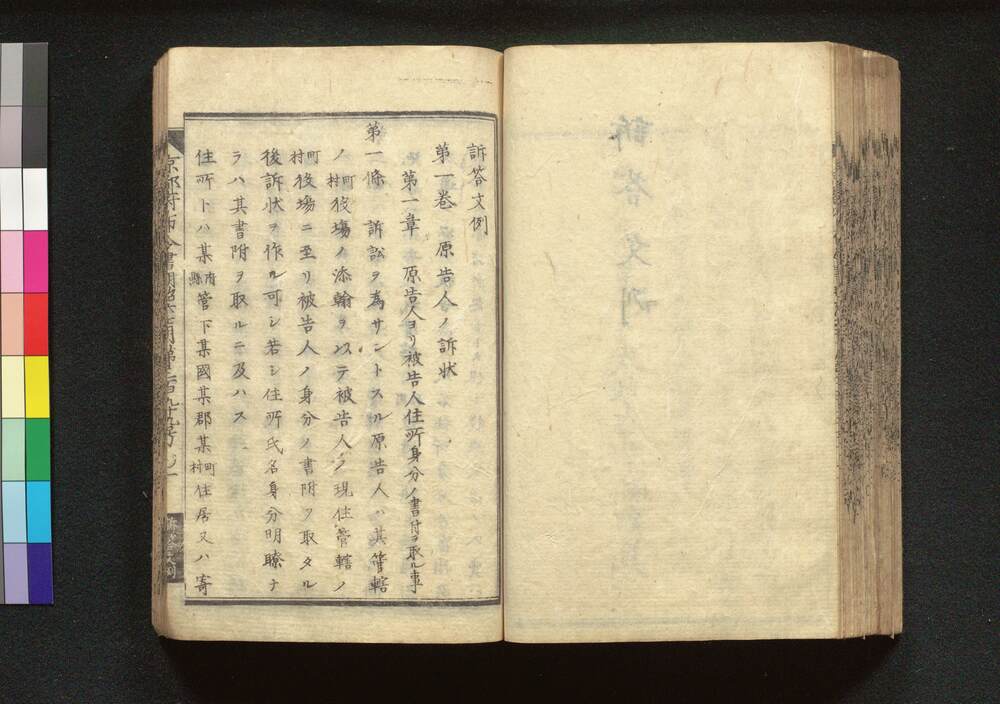 訴答文例
第一巻 原告人ノ訴状
第一章 原告人ヨリ被告人住所身分ノ書付ヲ取ル事
第一條 訴訟ヲ為サントスル原告人ハ其管轄
ノ町村役場ノ添翰ヲ以テ被告人ノ現住管轄ノ
町村役場ニ至リ被告人ノ身分ノ書附ヲ取タル
後訴状ヲ作ル可シ若シ住所氏名身分明瞭ナ
ラハ其書附ヲ取ルニ及ハス
住所トハ某府縣管下某國某郡某町村住居又ハ寄
京都府布令書明治六年第二百九十九号ノ一
訴答文例